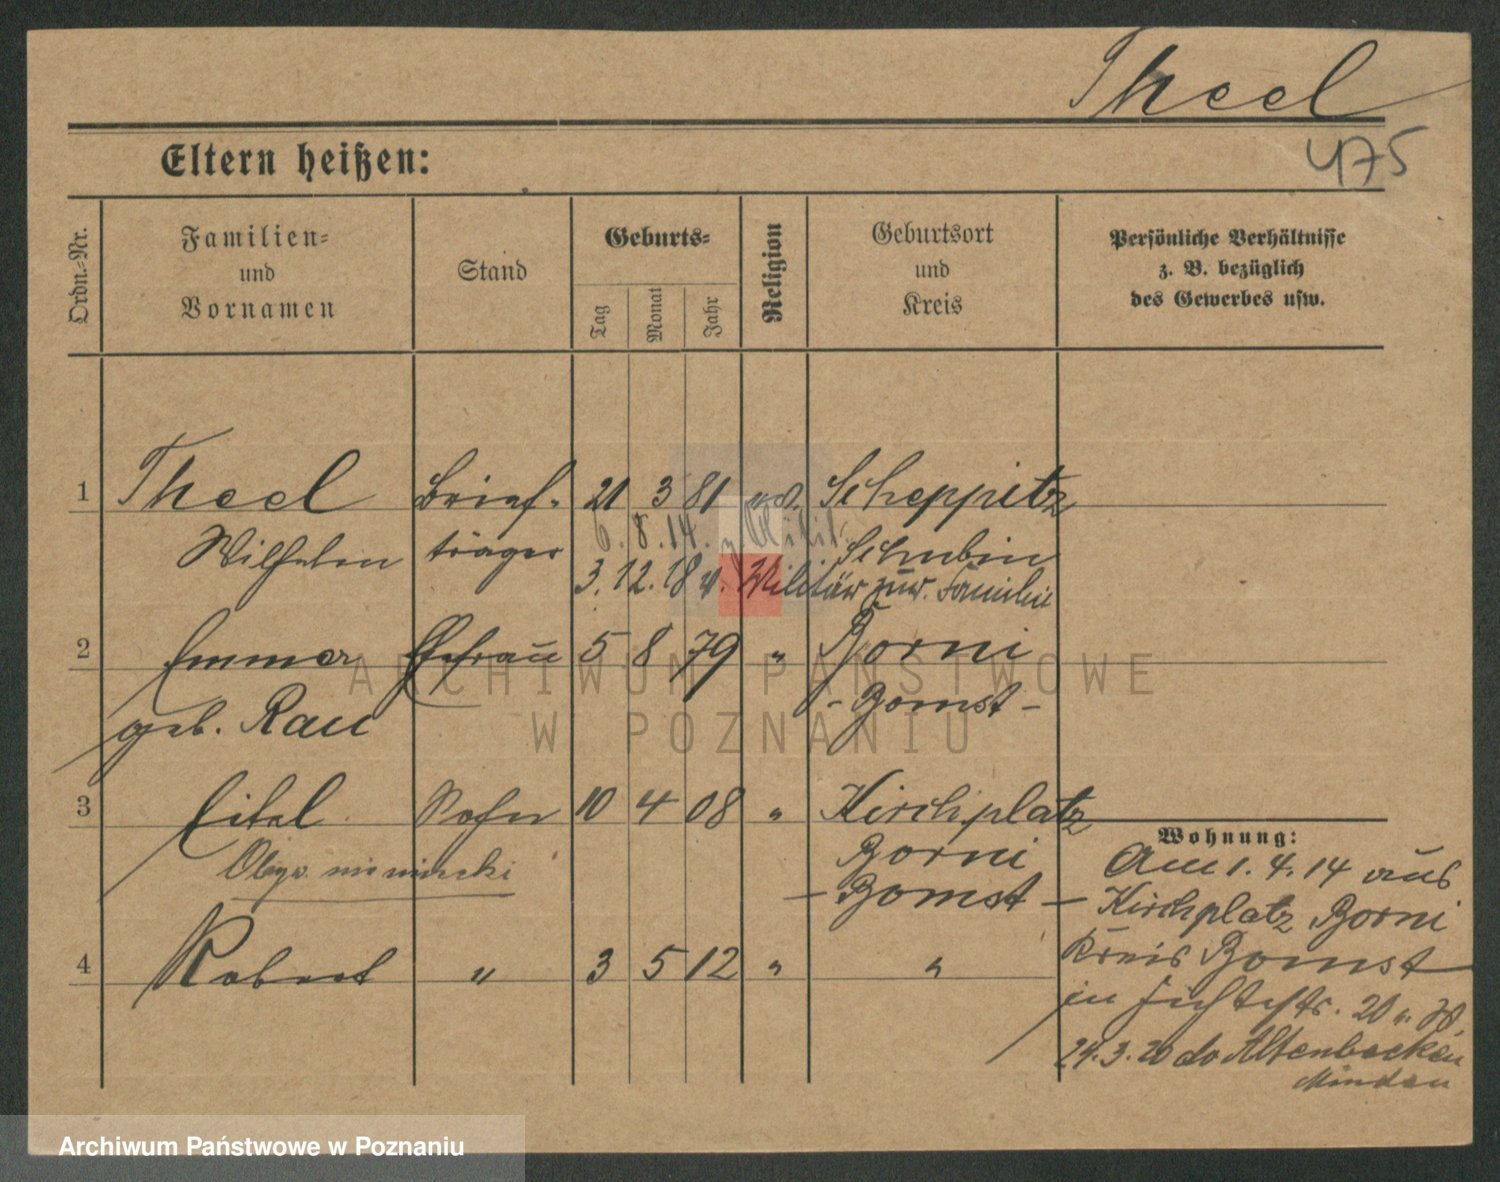 Theel
475
Eltern heißen:
Ordn.-Nr.
Familien-
und
Vornamen
Stand
Geburts-
Tag
Monat
Jahr
Religion
Geburtsort
und
Kreis
Persönliche Verhältnisse
z. B. bezüglich
des Gewerbes usw.
1 Theel Brief- 21 3 81 ev. Scheppitz
6. 8. 14. z. Milit.
Wilhelm träger Schubin
3. 12. 18 v. Militär zur Familie
2 Emma Ehefrau 5 8 79 " Borni
geb. Rau - Bomst -
3 Eitel Sohn 10 4 08 " Kirchplatz
Obyw. niemiecki Borni
- Bomst -
4 Robert " 3 5 12 " "
Wohnung:
Am 1. 4. 14 aus
Kirchplatz Borni
Kreis Bomst
in Fichtestr. 20
24. 3. 20 do Altenbecken
Minden
ARCHIWUM PAŃSTWOWE
W POZNANIU
Archiwum Państwowe w Poznaniu